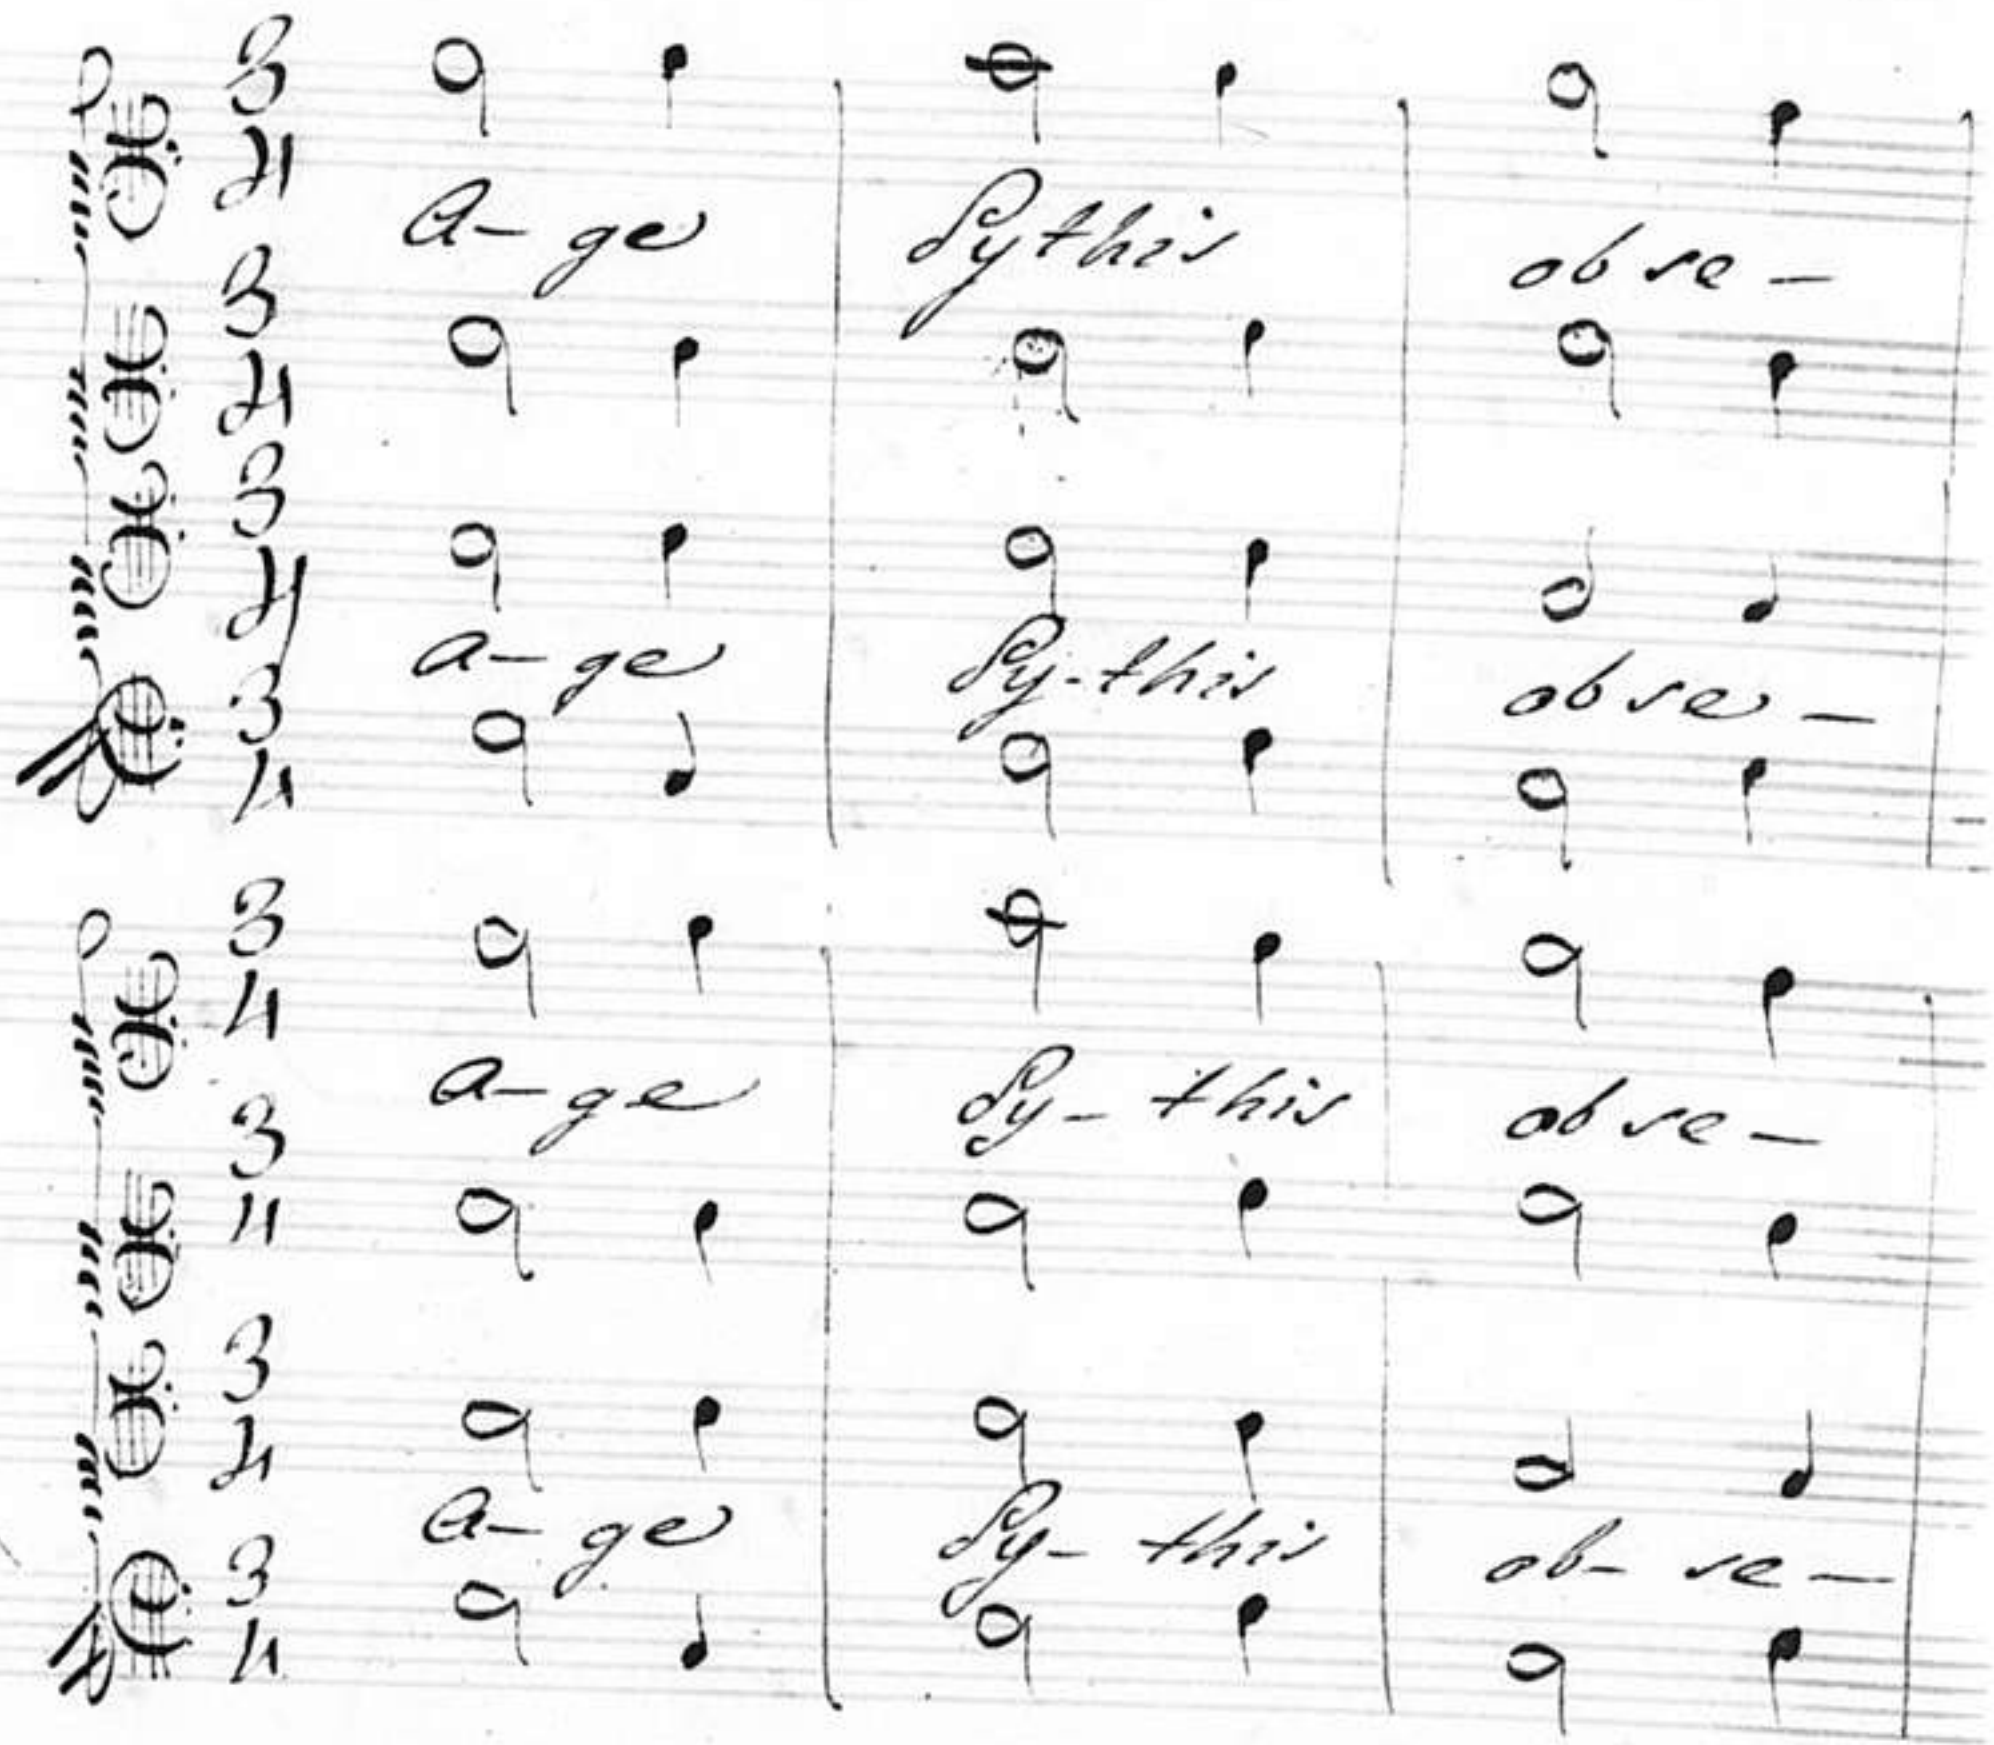 3
4
A- ge Sythis obse-
3
4
3
4
A- ge Sy-this obse-
3
4
3
4
A- ge Sy- this obse-
3
4
3
4
A- ge Sy- this ob- se-
3
4